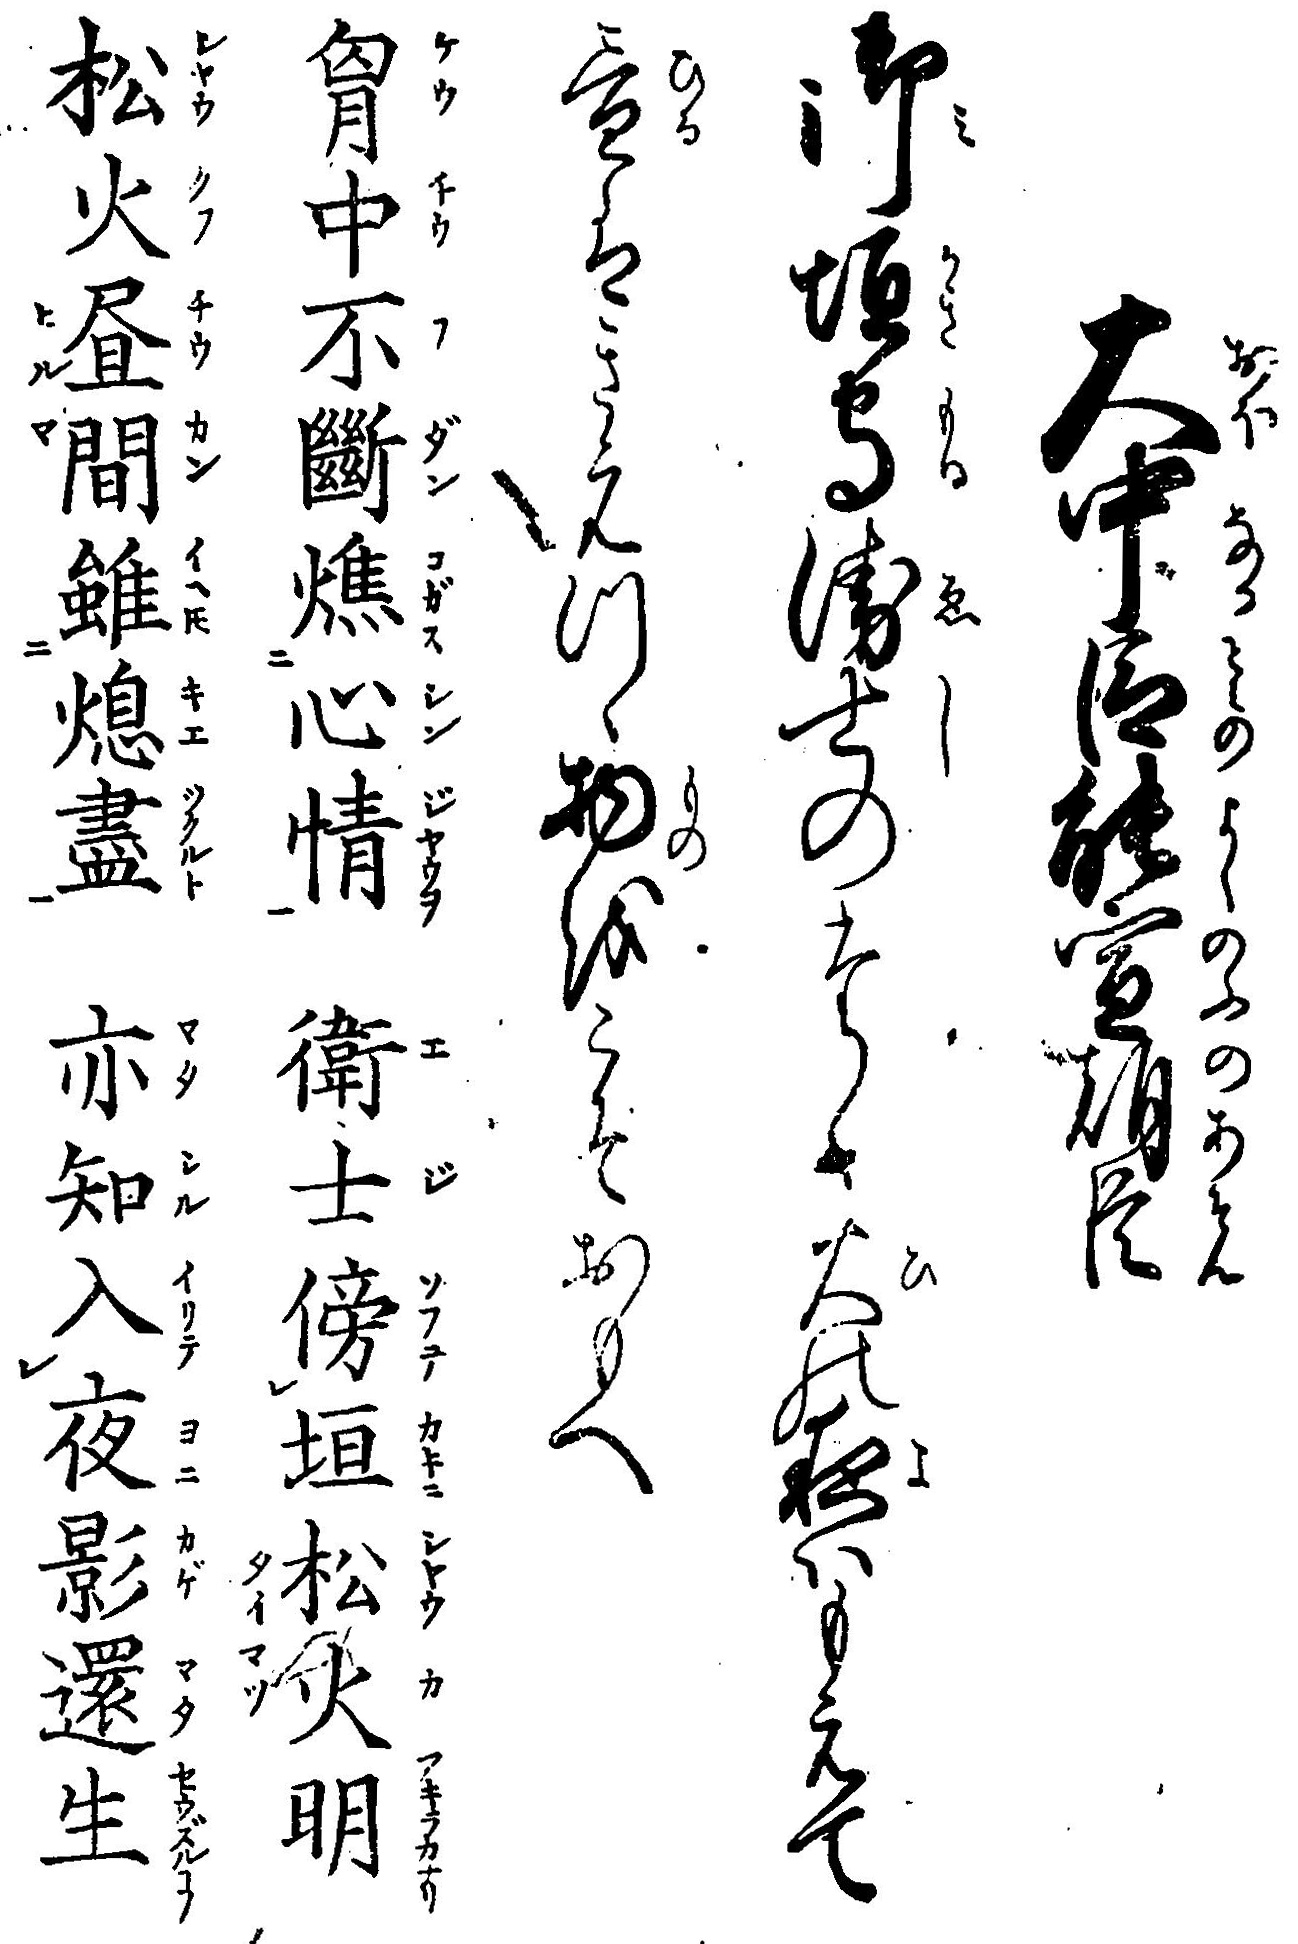 大中臣能宣朝臣
御垣守衛士のたく火の夜はもえて
昼はきえつゝ物をこそおもへ
胷中不斷燋心情 衛士傍垣松火明
松火昼間雖熄盡 亦知入夜影還生